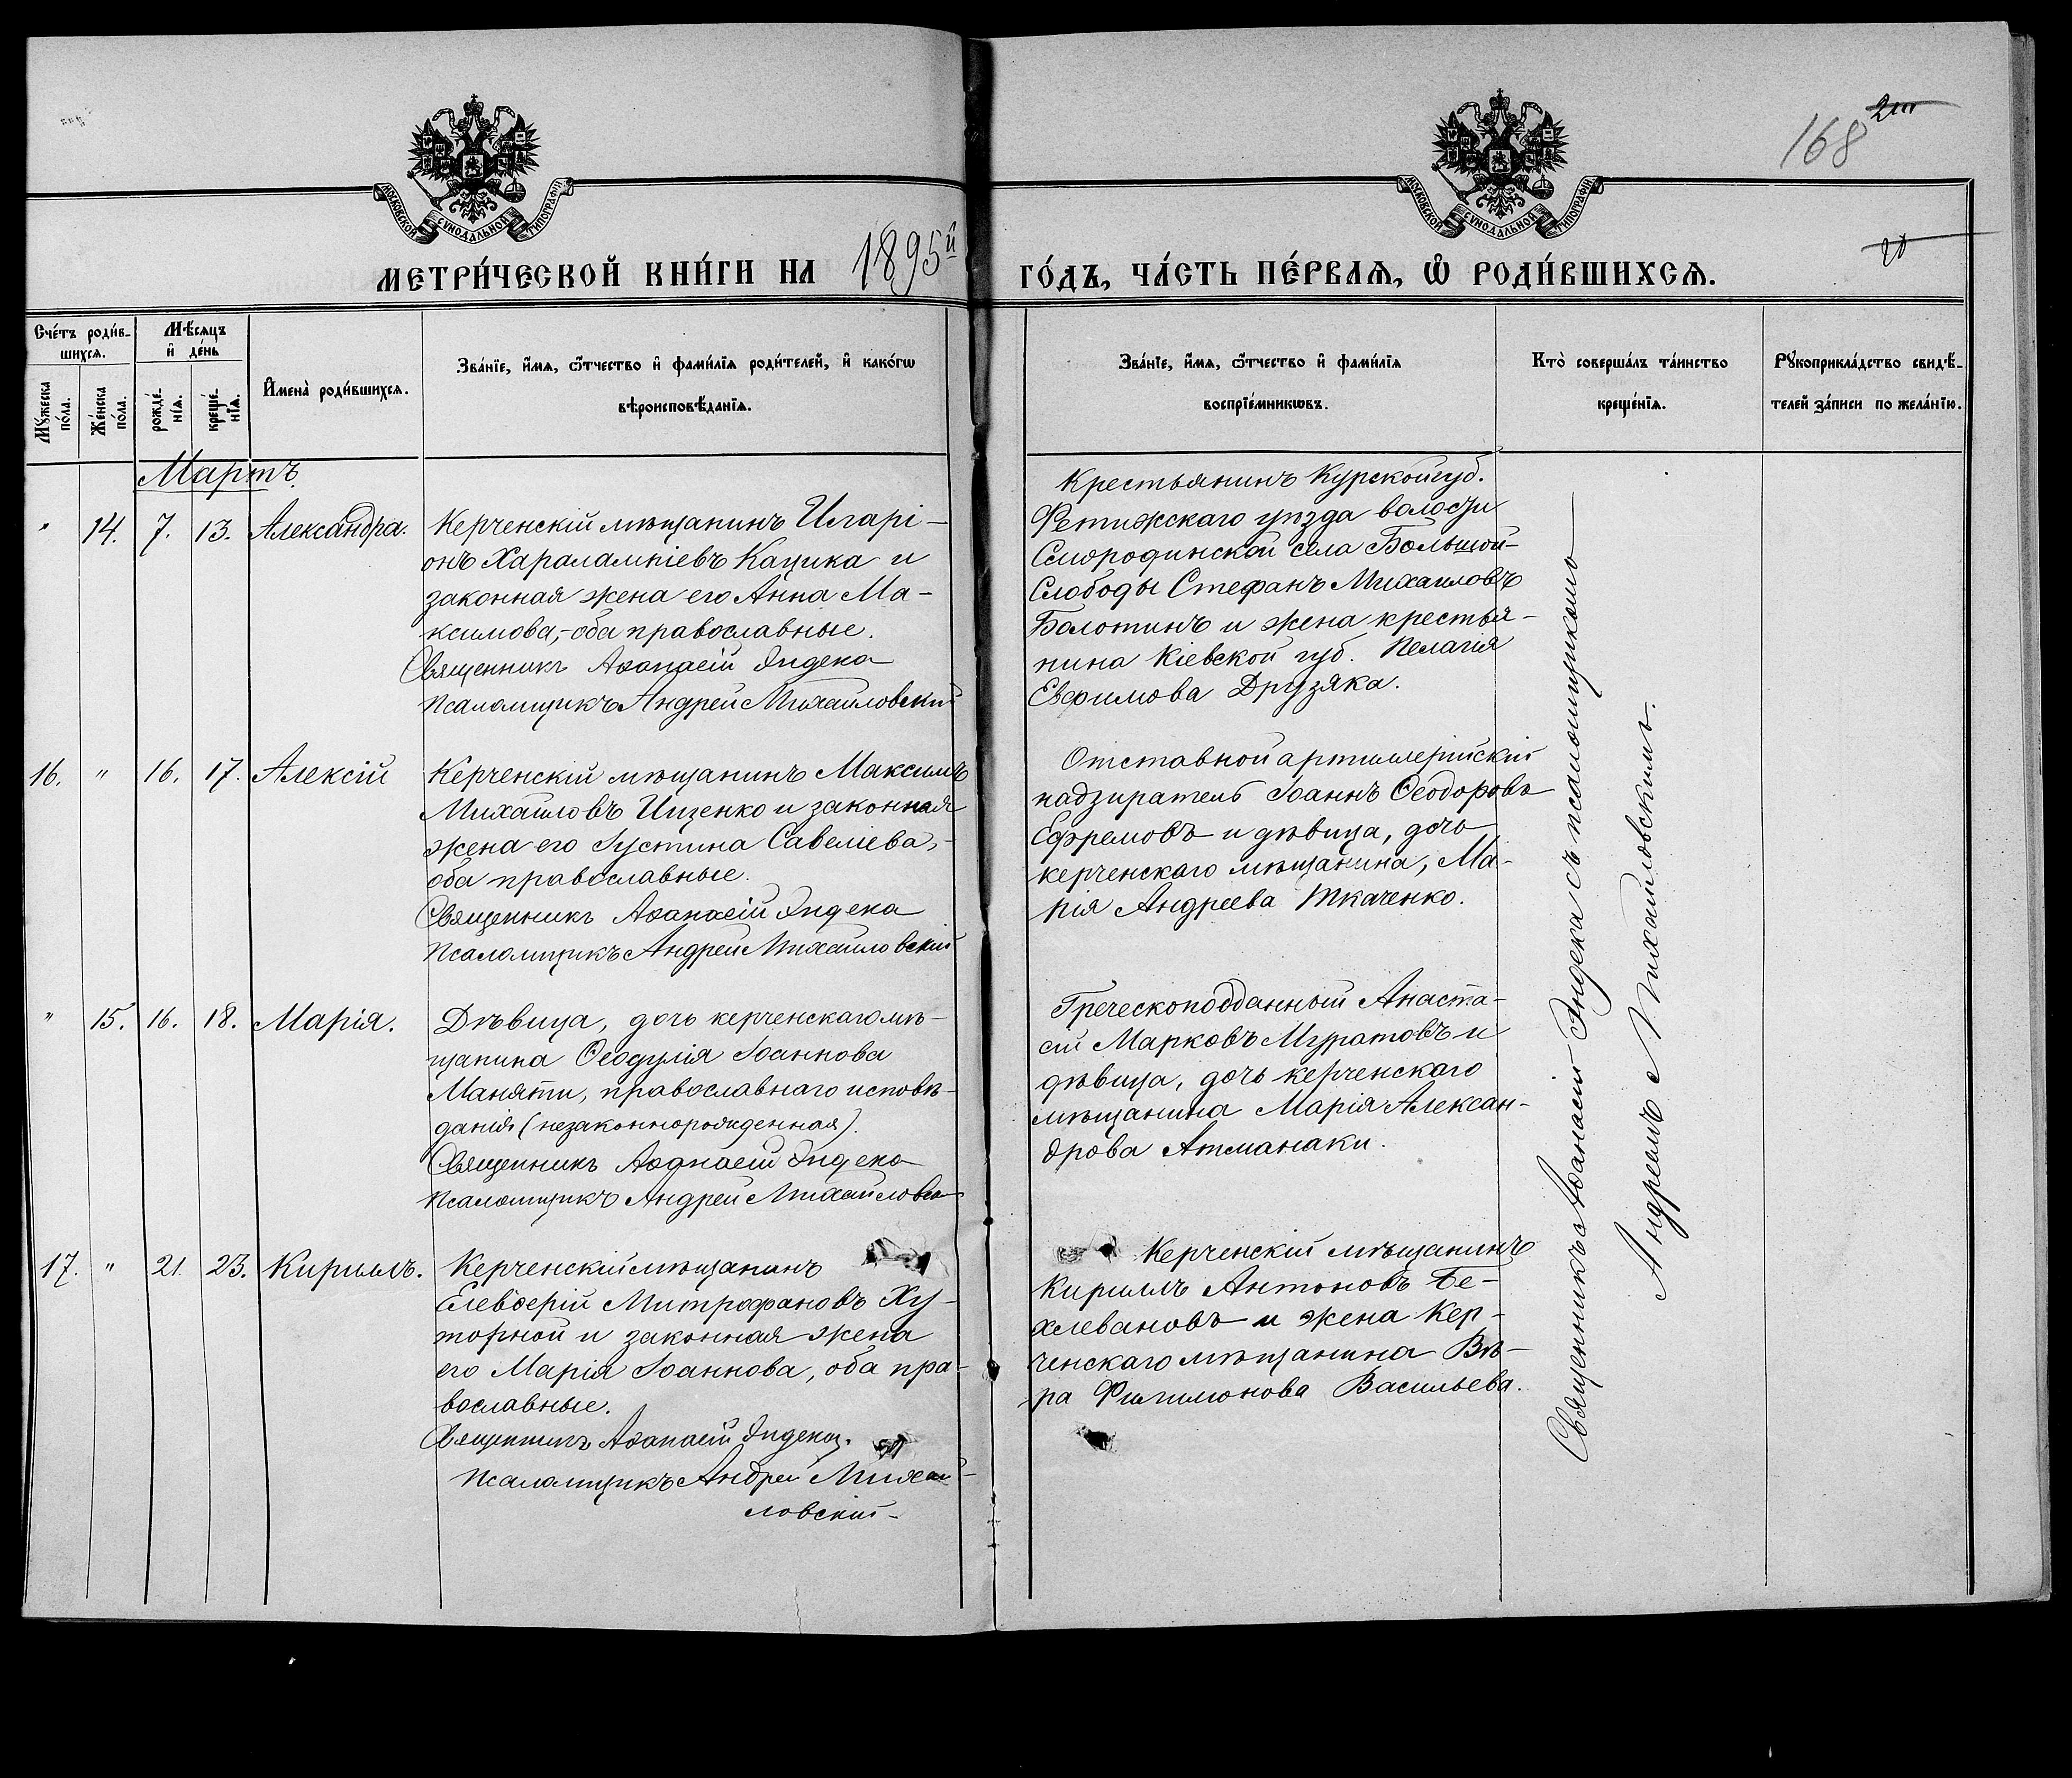 168
МОСКОВСКОЙ СУНОДАЛЬНОЙ ТИПОГРАФІИ
МОСКОВСКОЙ СУНОДАЛЬНОЙ ТИПОГРАФІИ
МЕТРИ́ЧЕСКОЙ КНИ́ГИ НА 1895й ГО́ДЪ, ЧА́СТЬ ПЕ́РВАѦ, Ѽ РОДИ́ВШИХСѦ.
Сче́тъ роди́в-
шихсѧ.
Мꙋ́жеска по́ла.
Же́нска по́ла.
Мѣ́сѧцъ
и҆ де́нь
рожде́-
нїѧ.
креще́-
нїѧ.
И҆мена̀ роди́вшихсѧ.
Зва́нїе, и҆́мѧ, ѻ҆́тчество и҆ фами́лїѧ роди́телей, и҆ како́гѡ
вѣроисповѣ́данїѧ.
Зва́нїе, и҆́мѧ, ѻ҆́тчество и҆ фами́лїѧ
воспрїе́мникѡвъ.
Кто̀ соверша́лъ та́инство
креще́нїѧ.
Рꙋкоприкла́дство свидѣ́-
телей за́писи по жела́нїю.
Мартъ
" 14. 7. 13. Александра.
Керченскій мѣщанинъ Иларі-
онъ Харалампіевъ Кацика и
законная жена его Анна Ма-
ксимова,-оба православные.
Священникъ Аѳанасій Индека
Псаломщикъ Андрей Михайловскій
Крестьянинъ Курской губ.
уѣзда волости
Смородинской села Большой-
Слободы Стефанъ Михаиловъ
Болотинъ и жена крестья-
нина Кіевской губ. Пелагія
Евфимова Друзяка.
16. " 16. 17. Алексій
Керченскій мѣщанинъ Максимъ
Михайловъ Ищенко и законная
жена его Іустина Савеліева,-
оба православные.
Священникъ Аѳанасій Индека
Псаломщикъ Андрей Михайловскій
Отставной артиллерійскій
надзиратель Іоаннъ Ѳеодоровъ
Ефремовъ и дѣвица, дочь
керченскаго мѣщанина, Ма-
рія Андреева Ткаченко.
" 15. 16. 18. Марія.
Дѣвица, дочь керченскаго мѣ-
щанина Ѳеодулія Іоаннова
Маняти, православнаго исповѣ-
данія (незаконнорожденная).
Священникъ Аѳанасій Индека
Псаломщикъ Андрей Михайловскій
Греческоподданной Анаста-
сій Марковъ Муратовъ и
дѣвица, дочь керченскаго
мѣщанина Марія Алексан-
дрова Атманаки.
17. " 21. 23. Кириллъ.
Керченскій мѣщанинъ
Елевѳерій Митрофановъ Ху-
торной и законная жена
его Марія Іоаннова, оба пра-
вославные.
Священникъ Аѳанасій Индека.
Псаломщикъ Андрей Михай-
ловскій-
Керченскій мѣщанинъ
Кириллъ Антоновъ Бе-
хлевановъ и жена Кер-
ченскаго мѣщанина Вѣ-
ра Филимонова Васильева.
Священникъ Аѳанасій Индека съ псаломщикомъ
Андреемъ Михайловскимъ.